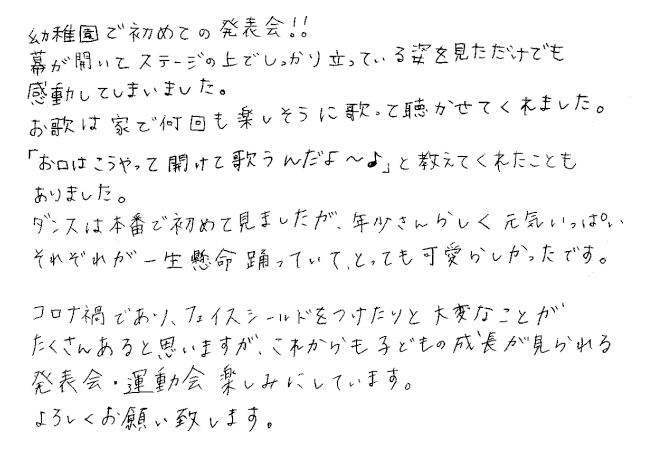 幼稚園で初めての発表会!!
幕が開いてステージの上でしっかり立っている姿を見ただけでも
感動してしまいました。
お歌は家で何回も楽しそうに歌って聴かせてくれました。
「お口はこうやって開けて歌うんだよ〜♪」と教えてくれたことも
ありました。
ダンスは本番で初めて見ましたが、年少さんらしく元気いっぱい
それぞれが一生懸命踊っていて、とっても可愛らしかったです。
コロナ禍であり、フェイスシールドをつけたりと大変なことが
たくさんあると思いますが、これからも子どもの成長が見られる
発表会・運動会楽しみにしています。
よろしくお願い致します。